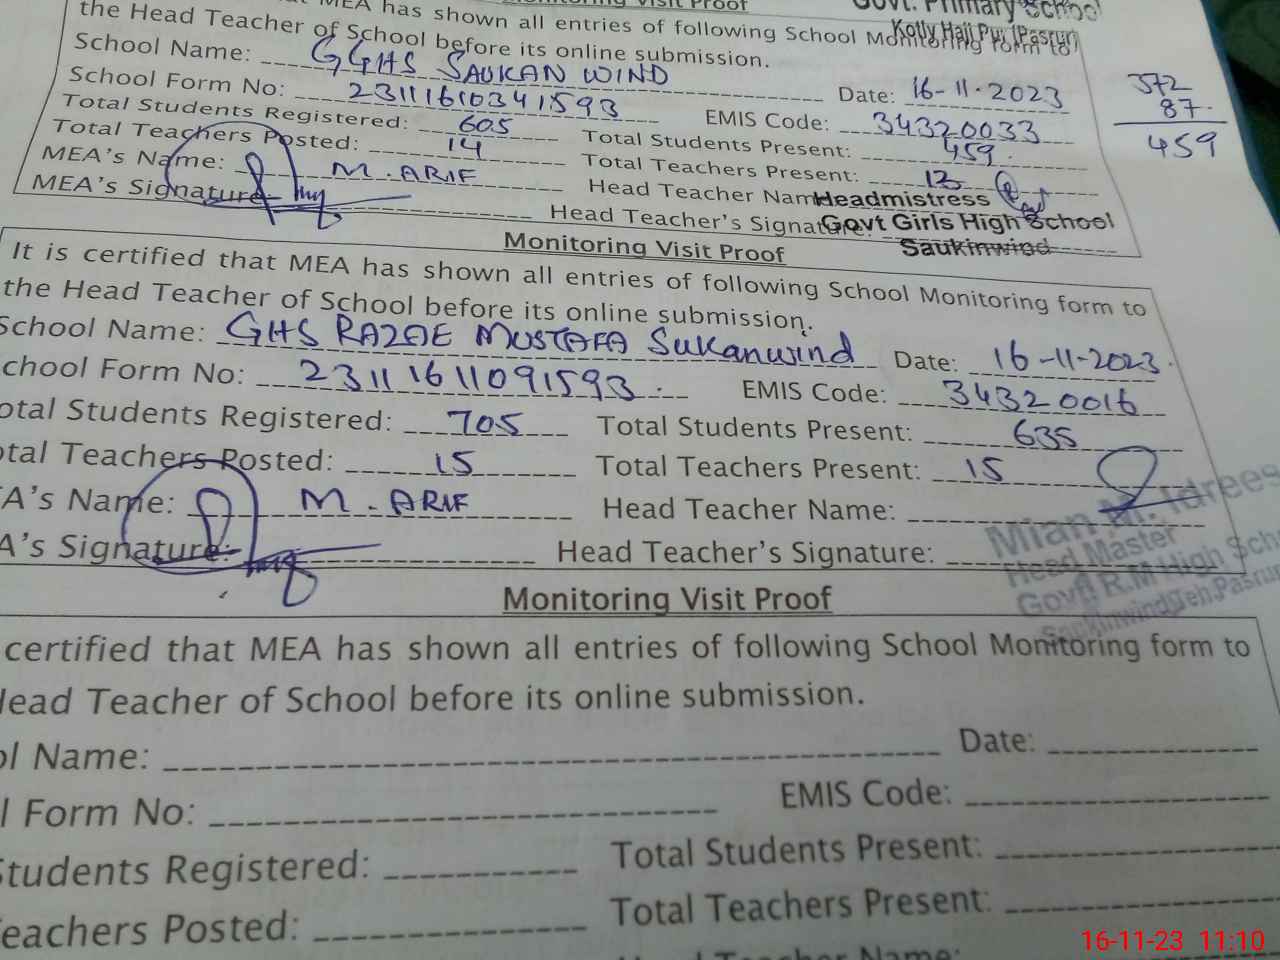 Monitoring Visit Proof
Govt. Primary School
Kotly Haji Pur (Pasrur)
MEA has shown all entries of following School Monitoring form to
the Head Teacher of School before its online submission.
School Name: GGHS SAUKAN WIND
School Form No: 23111610341593 Date: 16-11-2023
Total Students Registered: 605 EMIS Code: 34320033
Total Teachers Posted: 14 Total Students Present: 459
MEA's Name: M. ARIF Total Teachers Present: 13
MEA's Signature: Head Teacher Name: Headmistress
Head Teacher's Signature: Govt Girls High School
Saukinwind
372
87
459
Monitoring Visit Proof
It is certified that MEA has shown all entries of following School Monitoring form to
the Head Teacher of School before its online submission.
School Name: GHS RAZAE MUSTAFA Sukanwind Date: 16-11-2023
chool Form No: 23111611091593 EMIS Code: 34320016
otal Students Registered: 705 Total Students Present: 635
otal Teachers Posted: 15 Total Teachers Present: 15
A's Name: M. ARIF Head Teacher Name:
A's Signature: Head Teacher's Signature:
Mian M. Idrees
Head Master
Govt R.M High Sch
Saukinwind Teh: Pasrur
Monitoring Visit Proof
certified that MEA has shown all entries of following School Monitoring form to
Head Teacher of School before its online submission.
ol Name: Date:
l Form No: EMIS Code:
Students Registered: Total Students Present:
Teachers Posted: Total Teachers Present:
Teacher Name:
16-11-23 11:10